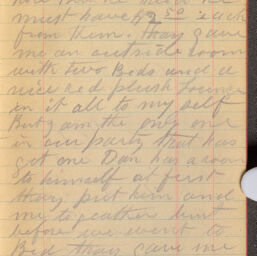 must have $2.50 each
from them. thay gave
me an outside room
with two Beds and a
nice red plush Lounge
in it all to my self
But I am the only one
in our party that has
got one Dan has a room
to himself at first
thay put him and
my to geather but
before we went to
Bed thay gave me